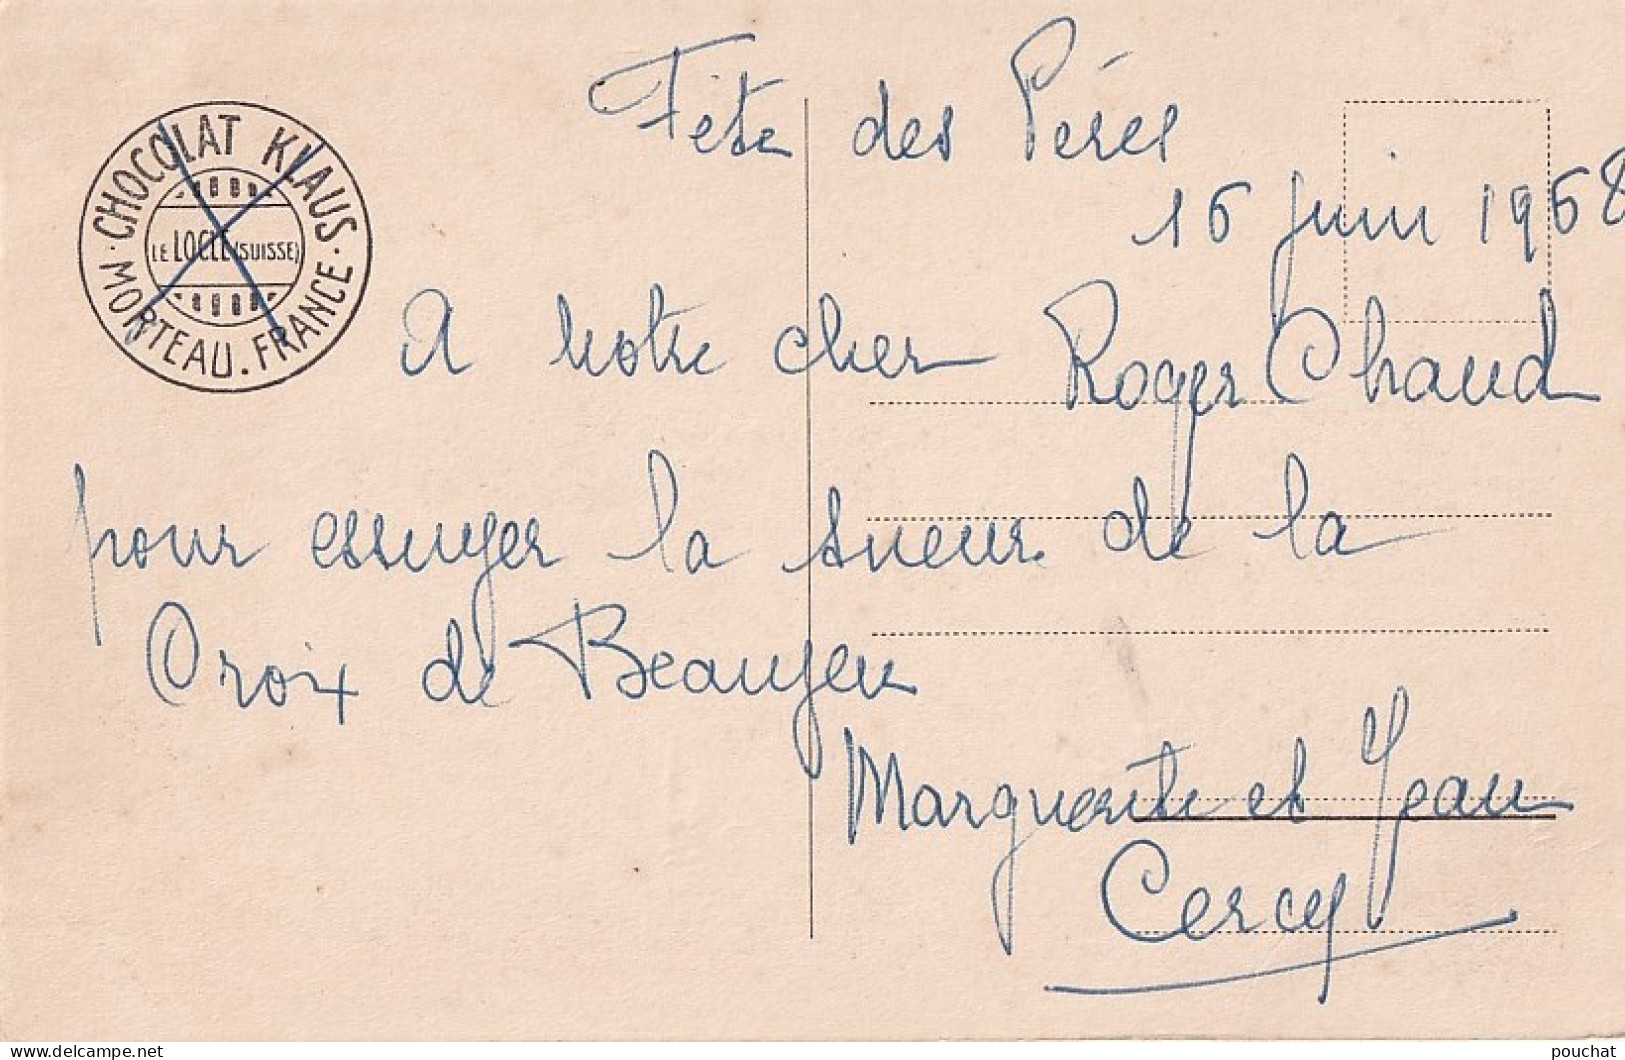 Fête des Pères
16 juin 1968
CHOCOLAT KLAUS
LE LOCLE (SUISSE)
MORTEAU. FRANCE
A notre cher Roger Chaud
pour essuyer la sueur de la
Croix de Beaujeu
Marguerite et Jean
Cercy
pouchat